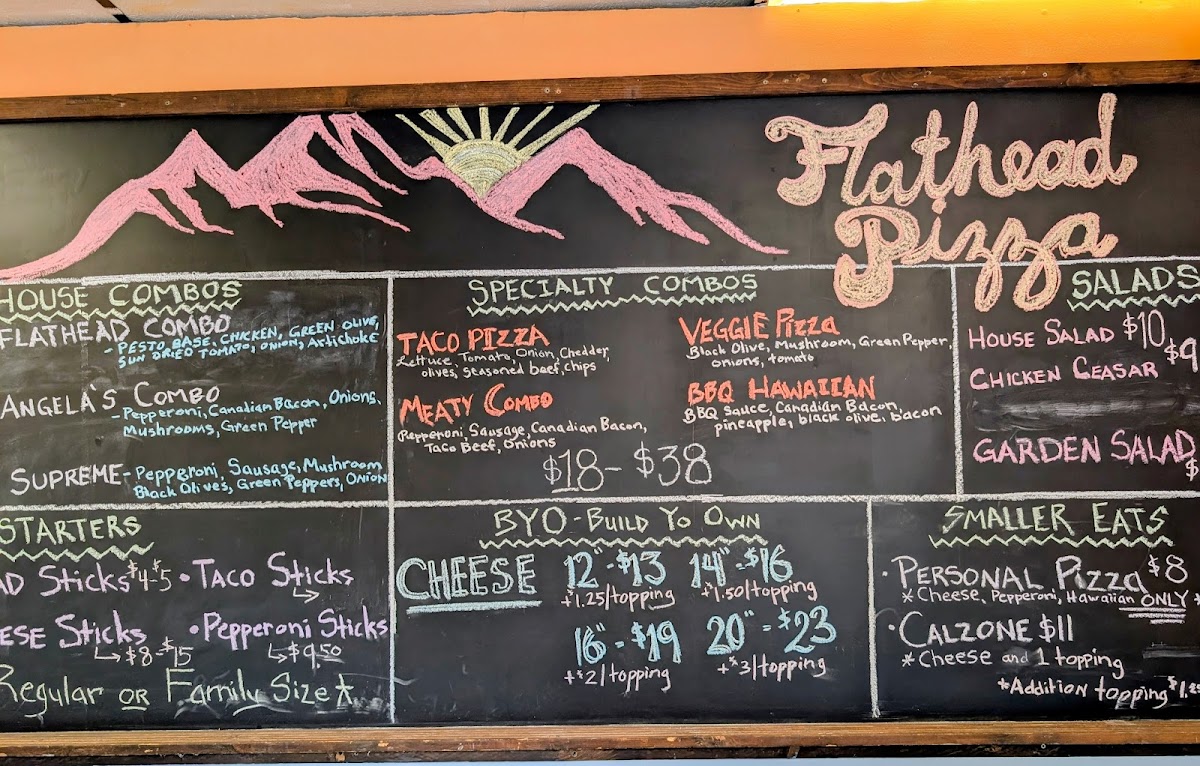 Flathead
Pizza
HOUSE COMBOS
FLATHEAD COMBO
- PESTO BASE, CHICKEN, GREEN OLIVE,
SUN DRIED TOMATO, ONION, Artichoke
ANGELA'S COMBO
- Pepperoni, Canadian Bacon, Onions,
Mushrooms, Green Pepper
SUPREME - Pepperoni, Sausage, Mushroom
Black Olives, Green Peppers, ONION
SPECIALTY COMBOS
TACO PIZZA
Lettuce, Tomato, Onion, Chedder,
olives, seasoned beef, chips
MEATY COMBO
Pepperoni, Sausage, Canadian Bacon,
Taco Beef, Onions
VEGGIE Pizza
Black Olive, Mushroom, Green Pepper,
onions, tomato
BBQ HAWAIIAN
BBQ sauce, Canadian Bacon,
pineapple, black olive, bacon
$18 - $38
SALADS
HOUSE SALAD $10
CHICKEN CEASAR $9
GARDEN SALAD
$
STARTERS
AD Sticks $4-$5 • TACO Sticks
ESE Sticks • Pepperoni Sticks
$8-$15 $9.50
Regular OR Family Size*
BYO - BUILD YO OWN
CHEESE
12" - $13 14" - $16
+$1.25/topping +$1.50/topping
16" - $19 20" - $23
+$2/topping +$3/topping
SMALLER EATS
• PERSONAL Pizza $8
* Cheese, Pepperoni, Hawaiian ONLY *
• CALZONE $11
* Cheese and 1 topping
*Addition topping $1.25